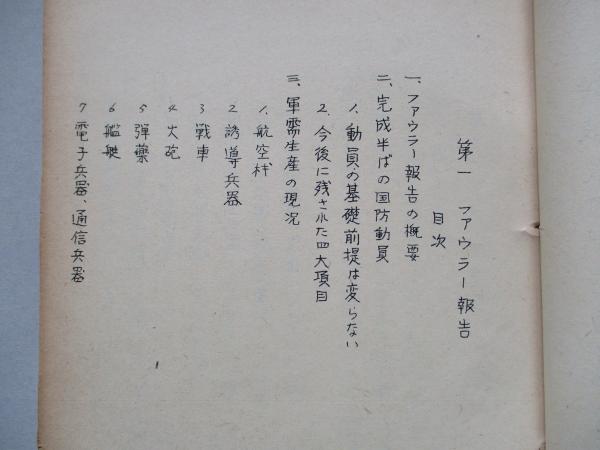 第一 ファウラー報告
目次
一、ファウラー報告の概要
二、完成半ばの国防動員
1、動員の基礎前提は変らない
2、今後に残された四大項目
三、軍需生産の現況
1、航空机
2 誘導兵器
3 戦車
4 火砲
5 弾藥
6 艦艇
7 電子兵器、通信兵器